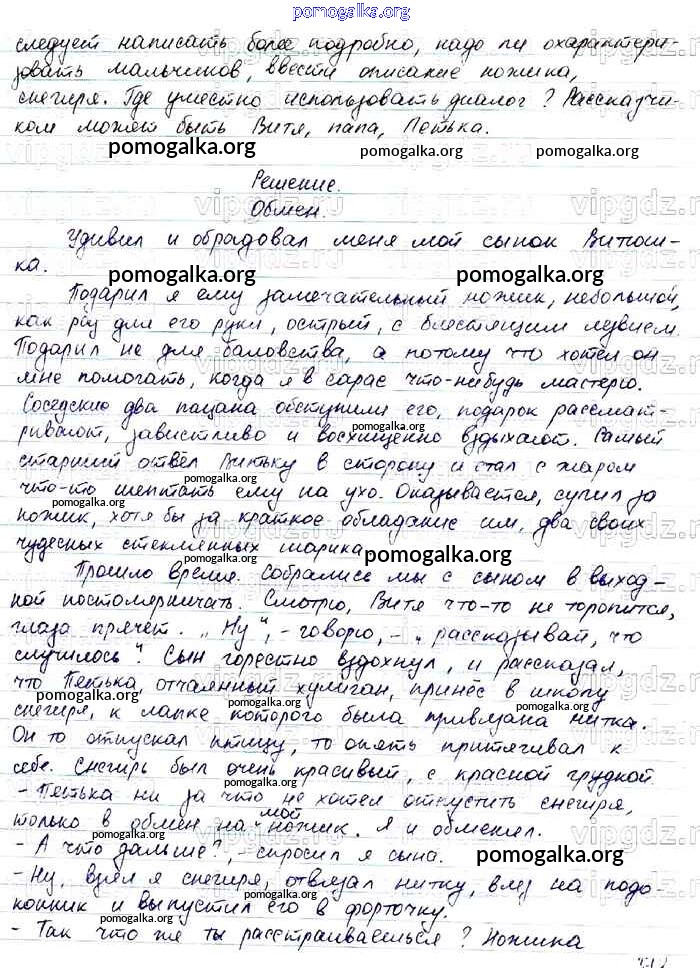 pomogalka.org
следует написать более подробно, надо ли охарактери-
зовать мальчиков, ввести описание ножика,
снегиря. Где уместно использовать диалог? Рассказчи-
ком может быть Витя, папа, Петька.
pomogalka.org pomogalka.org
Решение.
Обмен.
Удивил и обрадовал меня мой сынок Витюш-
ка.
pomogalka.org pomogalka.org
Подарил я ему замечательный ножик, небольшой,
как раз для его руки, острый, с блестящим лезвием.
Подарил не для баловства, а потому что хотел он
мне помогать, когда я в сарае что-нибудь мастерю.
Соседские два пацана обступили его, подарок рассмат-
ривают, завистливо и восхищенно вздыхают. Самый
старший отвёл Витьку в сторону и стал с жаром
pomogalka.org
что-то шептать ему на ухо. Оказывается, сулил за
ножик, хотя бы за краткое обладание им, два своих
чудесных стеклянных шарика
pomogalka.org
Прошло время. Собрались мы с сыном в выход-
ной постолярничать. Смотрю, Витя что-то не торопится,
глаза прячет. „Ну", - говорю, - „рассказывай, что
случилось". Сын горестно вздохнул, и рассказал,
что Петька, отчаянный хулиган, принёс в школу
pomogalka.org pomogalka.org
снегиря, к лапке которого была привязана нитка.
Он то отпускал птицу, то опять притягивал к
себе. Снегирь был очень красивый, с красной грудкой.
pomogalka.org
- Петька ни за что не хотел отпустить снегиря,
только в обмен на мой ножик. Я и обменял.
pomogalka.org
- А что дальше?, - спросил я сына.
pomogalka.org
- Ну, взял я снегиря, отвязал нитку, влез на подо-
конник и выпустил его в форточку.
pomogalka.org
- Так что же ты расстраиваешься? Ножика